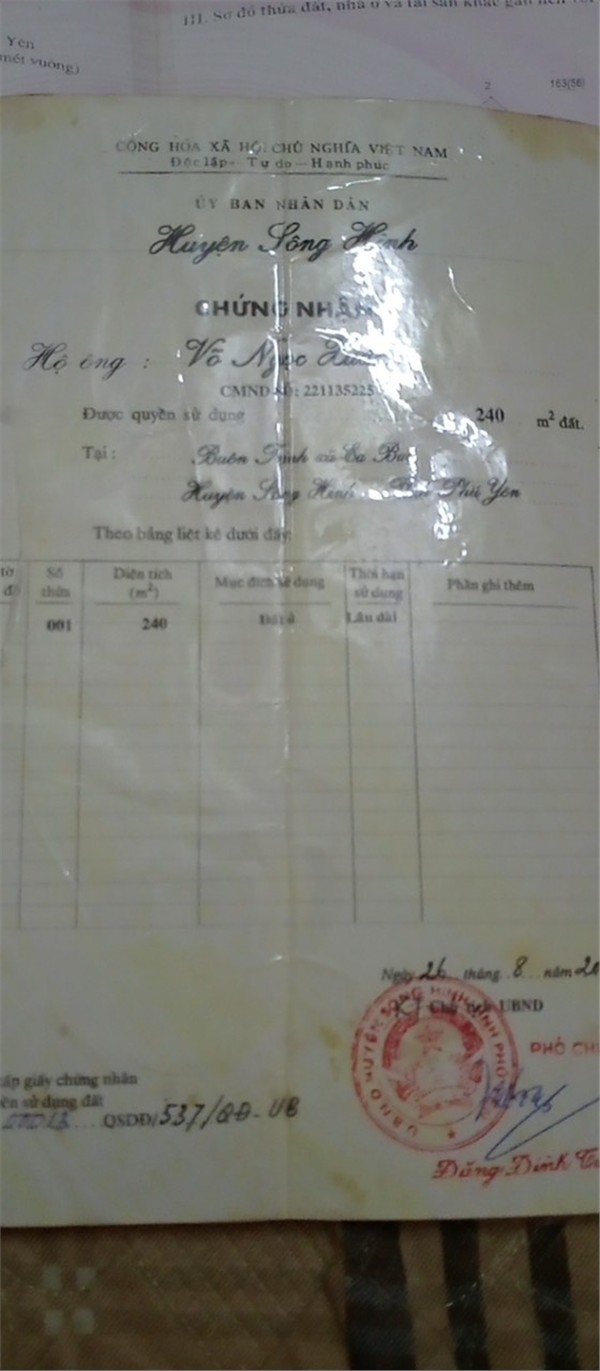 III. Sơ đồ thửa đất, nhà ở và tài sản khác gắn liền với
Yên
mét vuông)
2
163(56)
CỘNG HÒA XÃ HỘI CHỦ NGHĨA VIỆT NAM
Độc lập - Tự do - Hạnh phúc
ỦY BAN NHÂN DÂN
Huyện Sông Hinh
CHỨNG NHẬN
Hộ ông : Võ Ngọc
CMND SỐ: 221135225
Được quyền sử dụng 240 m² đất.
Tại : Buôn Trinh xã Ea Ba
Huyện Sông Hinh Phú Yên
Theo bảng liệt kê dưới đây:
tờ Số Diện tích Mục đích sử dụng Thời hạn Phần ghi thêm
đồ thửa (m²) sử dụng
001 240 Đất ở Lâu dài
Ngày 26 tháng 8 năm 20
KT Chủ tịch UBND
PHÓ CH
UBND HUYỆN SÔNG HINH TỈNH PHÚ
cấp giấy chứng nhận
quyền sử dụng đất
QSDĐ/ 537/QĐ-UB
Đặng Đình